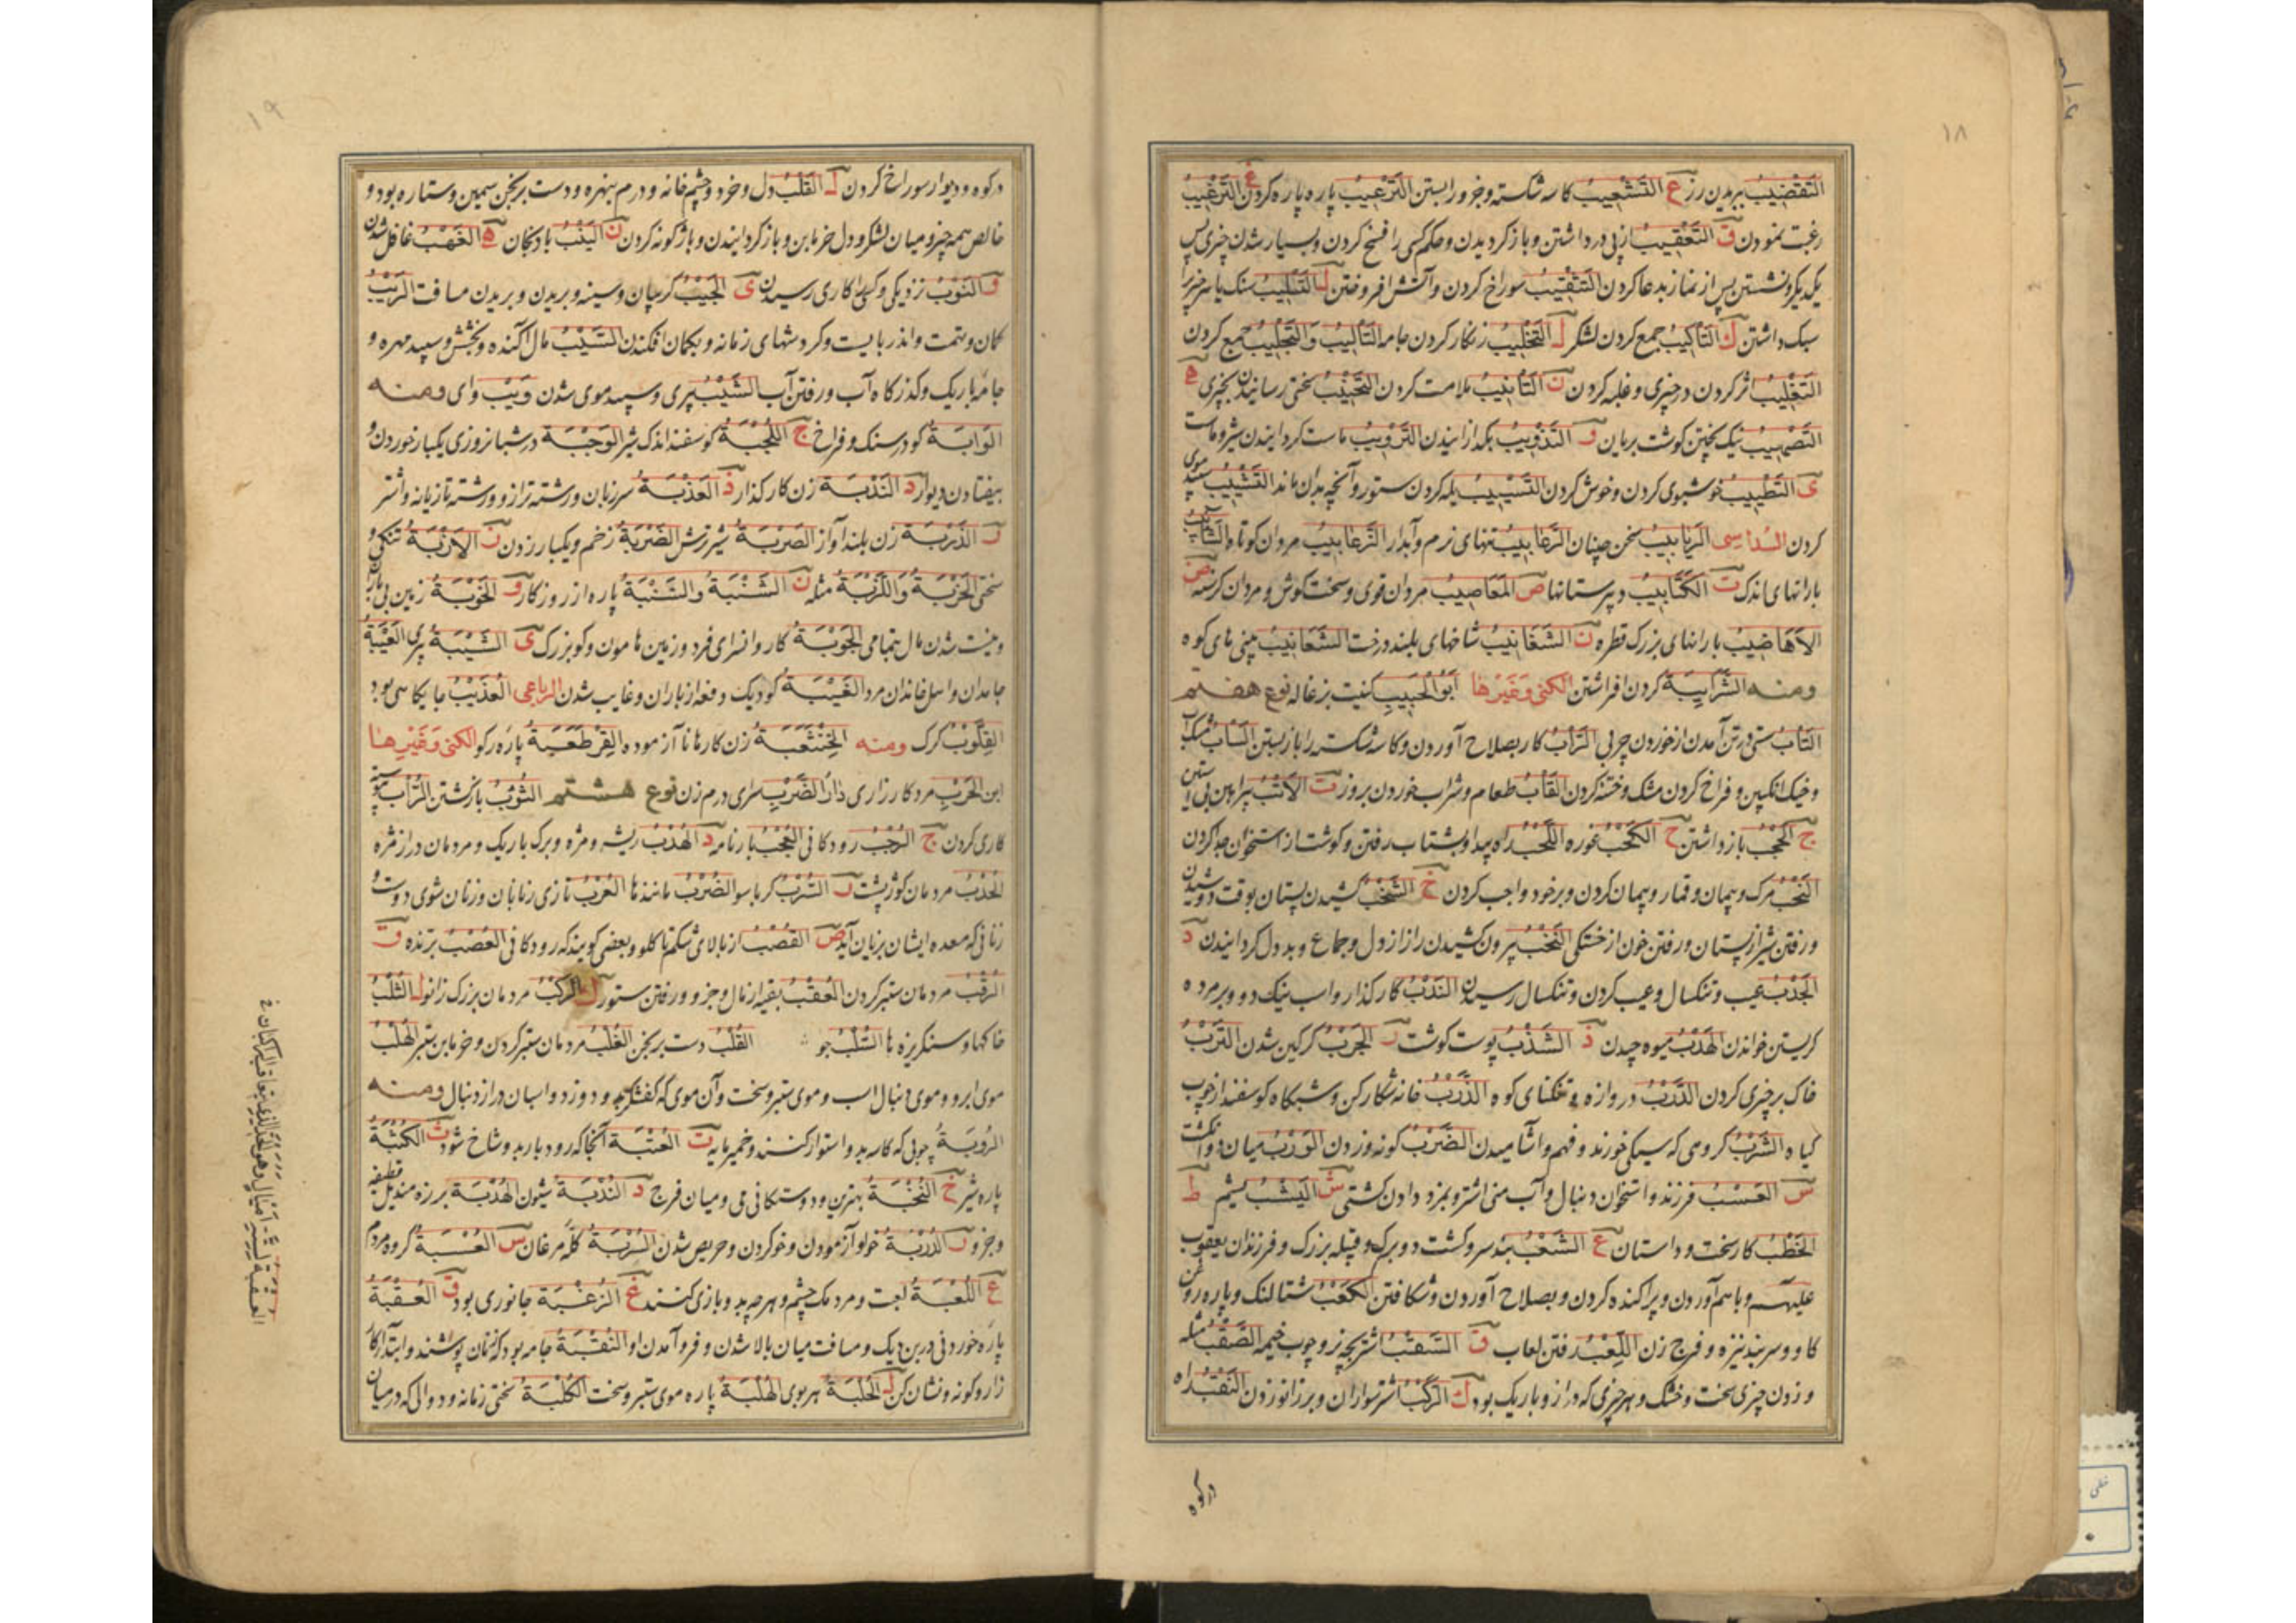 ١٨
التَقْضِیبُ بریدن رز ع التَشْعِیبُ کاسه شکسته و جزو را بستن التَرْعِیبُ پاره پاره کردن غ التَرْغِیبُ
رغبت نمودن ق التَعْقِیبُ از پی در داشتن و باز کردیدن و حکم کسی را فسخ کردن و بسیار شدن چیزی پس
یکدیکر و نشستن پس از نماز بدعا کردن التَثْقِیبُ سوراخ کردن و آتش افروختن
سبک داشتن ك التَأکِیبُ جمع کردن لشکر ل التَخْلِیبُ زنکار کردن جامه التَألِیبُ وَ التَجْلِیبُ جمع کردن
التَغْلِیبُ اثر کردن در چیزی و غلبه کردن ن التَأنِیبُ ملامت کردن التَحْنِیبُ سختی رسانیدن بچیزی ه
التَصْهِیبُ نیک پختن کوشت بریان و التَذْوِیبُ بکدازانیدن التَرْوِیبُ ماست کردانیدن شیر و ماست
ی التَطْیِیبُ خوشبوی کردن و خوش کردن التَسْیِیبُ یله کردن ستور و آنچه بدان ماند التَشْیِیبُ سپید موی
کردن السُداسی سخن چینان الرَعَابِیبُ تنهای نرم و آبدار الزَعَابِیبُ مردان کوتاه الشَآبِیبُ
بارانهای اندک ت الکَتَاتِیبُ دبیرستانها ص المَعَاصِیبُ مردان قوی و سخت کوش و مردان کرسنه ض
الاَهَاضِیبُ بارانهای بزرک قطره ن الشَغَانِیبُ شاخهای بلند درخت الشَعَانِیبُ بینی های کوه
ومنه الشَرَابِیبَةُ کردن افراشتن الکنی وَغَیْرها اَبُو الحَبِیبِ کنیت بزغاله نوع هفتم
التَابُ سستی در تن آمدن از خوردن چربی الرَابُ کار بصلاح آوردن و کاسه شکسته را باز بستن السَابُ مشک
و خیک انکبین و فراخ کردن مشک و خسته کردن القَابُ طعام و شراب خوردن بروز ت الاَتْبُ پیراهن بی آستین
ج الحَجْبُ باز داشتن ح الکَحْبُ غوره اللَحْبُ راه پیدا و بشتاب رفتن و کوشت از استخوان جدا کردن
النَحْبُ مرک و پیمان و قمار و پیمان کردن و بر خود واجب کردن خ الشَخْبُ کشیدن پستان بوقت دوشیدن
و رفتن شیر از پستان و رفتن خون از خستکی النَخْبُ بیرون کشیدن راز از دل و جماع و بد دل کردانیدن د
الجَدْبُ عیب و تنکسال و عیب کردن و تنکسال رسیدن النَدْبُ کارکذار و اسب نیک دو و بر مرده
کریستن خواندن الهَدْبُ میوه چیدن ذ الشَذْبُ پوست کوشت ر الجَرْبُ کرکین شدن التَرْبُ
خاک بر چیزی کردن الدَرْبُ دروازه و تنکنای کوه الزَرْبُ خانه شکار کن و شبکاه کوسفند از چوب
کیاه الشَرْبُ کروهی که سیکی خورند و فهم و آشامیدن الضَرْبُ کونه و زدن الوَرْبُ میان دو انکشت
س العَسْبُ فرزند و استخوان دنبال و آب منی اشتر و بمزد دادن کشتی ش الیَشْبُ یشم ط
الخَطْبُ کار سخت و داستان ع الشَعْبُ بند سر و کشت دو برک و قبیله بزرک و فرزندان یعقوب
علیهم و باهم آوردن و پراکنده کردن و بصلاح آوردن و شکافتن الکَعْبُ شتالنک و پاره روغن
کاو و سر بند نیزه و فرج زن اللَعْبُ رفتن لعاب ق السَقْبُ اشتر بچه نر و چوب خیمه الصَقْبُ مثله
و زدن چیزی سخت و خشک و هر چیزی که دراز و باریک بود ك الرَکْبُ اشتر سواران و بر زانو زدن النَقْبُ راه
در کوه
١٩
در کوه و دیوار سوراخ کردن ل القَلْبُ دل و خرد و چشم خانه و درم بنهره و دست برنجن سیمین و ستاره بود و
خالص همه چیز و میان لشکر و دل خرمابن و باز کردانیدن و باژکونه کردن ن الیَنْبُ بادنجان ه الغَهْبُ غافل شدن
و النَوْبُ نزدیکی و کسی را کاری رسیدن ی الجَیْبُ کریبان و سینه و بریدن و بریدن مسافت الرَیْبُ
کمان و تهمت و اندر بایست و کردشهای زمانه و بکمان افکندن السَیْبُ مال آکنده و بخشش و سپید مهره و
جامه باریک و کذرکاه آب و رفتن آب الشَیْبُ پیری و سپید موی شدن وَیْبُ وای ومنه
الوَابَةُ کو در سنک و فراخ ج اللَجْبَةُ کوسفند اندک شیر الوَجْبَةُ در شبانروزی یکبار خوردن و
بیفتادن دیوار د النَدْبَةُ زن کارکذار ذ العَذْبَةُ سر زبان و رشته ترازو و رشته تازیانه و اشتر
ر الذَرْبَةُ زن بلند آواز الصَرْبَةُ شیر ترش الضَرْبَةُ زخم و یکبار زدن ز الاَزْبَةُ تنکی و
سختی الحَزْبَةُ وَاللَزْبَةُ مثله ن الشَنْبَةُ وَالسَنْبَةُ پاره از روزکار و الخَوْبَةُ زمین بی باران
و نیست شدن مال بتمامی الجَوْبَةُ کاروانسرای فرد و زمین هامون و کو بزرک ی الشَیْبَةُ پیری العَیْبَةُ
جامدان و اسل خاندان مرد الغَیْبَةُ کو دیک و دفعه از باران و غایب شدن الرباعی العُذَیْبُ جایکاهی بود
القِلَّوْبُ کرک ومنه الخِنْثَعْبَةُ زن کارها نا آزموده القِرْطَعْبَةُ پاره رکو الکنی وَغَیْرها
ابن الحَرْبِ مرد کارزاری دَارُ الضَرْبِ سرای درم زن نوع هشتم الثُوْبُ باز کشتن
کاری کردن ج الرُجْبُ رودکانی النُجْبُ بارنامه د الهُدْبُ ریشه و مژه و برک باریک و مردمان دراز مژه
الحُدْبُ مردمان کوژ پشت ر السُرْبُ کرباسو الضُرْبُ مانندها العُرْبُ تازی زبانان و زنان شوی دوست و
زنانی که معده ایشان بزیان آید ص القُصْبُ از بالای شکم تا کلو و بعضی کویند که رودکانی العُصْبُ برنده ق
الرُقْبُ مردمان ستبر کردن العُقْبُ بقیه از مال و جزو و رفتن ستور ك الرُکْبُ مردمان بزرک زانو ل الثُلْبُ
خاکها و سنکریزه ها السُلْبُ جو القُلْبُ دست برنجن الغُلْبُ مردمان ستبر کردن و خرمابن ستبر الهُلْبُ
موی ابرو و موی دنبال اسب و موی ستبر و سخت و آن موی که کفشکر بدو دوزد و اسبان دراز دنبال ومنه
الرُوبَةُ چوبی که کاسه بدو استوار کنند و خمیر مایه ت العُتْبَةُ آنجا که رود بار بدو شاخ شود ث الکُثْبَةُ
پاره شیر خ النُخْبَةُ بهترین و دوستکانی می و میان فرج د النُدْبَةُ شیون الهُدْبَةُ برزه مندیل قطیفه
و جزو ر الدُرْبَةُ خو و آزمودن و خو کردن و حریص شدن السُرْبَةُ کله مرغان س العُسْبَةُ کروه مردم
ع اللُعْبَةُ لعبت و مردمک چشم و هر چه بدو بازی کنند غ الزُغْبَةُ جانوری بود ق العُقْبَةُ
پاره خوردنی در بن دیک و مسافت میان بالا شدن و فرو آمدن او النُقْبَةُ جامه بود که زنان پوشند و ابتدا کار
زار و کونه و نشان کن ل الجُلْبَةُ هر بوی الهُلْبَةُ پاره موی ستبر و سخت الکُلْبَةُ سختی زمانه و دوالی که در میان
خطی